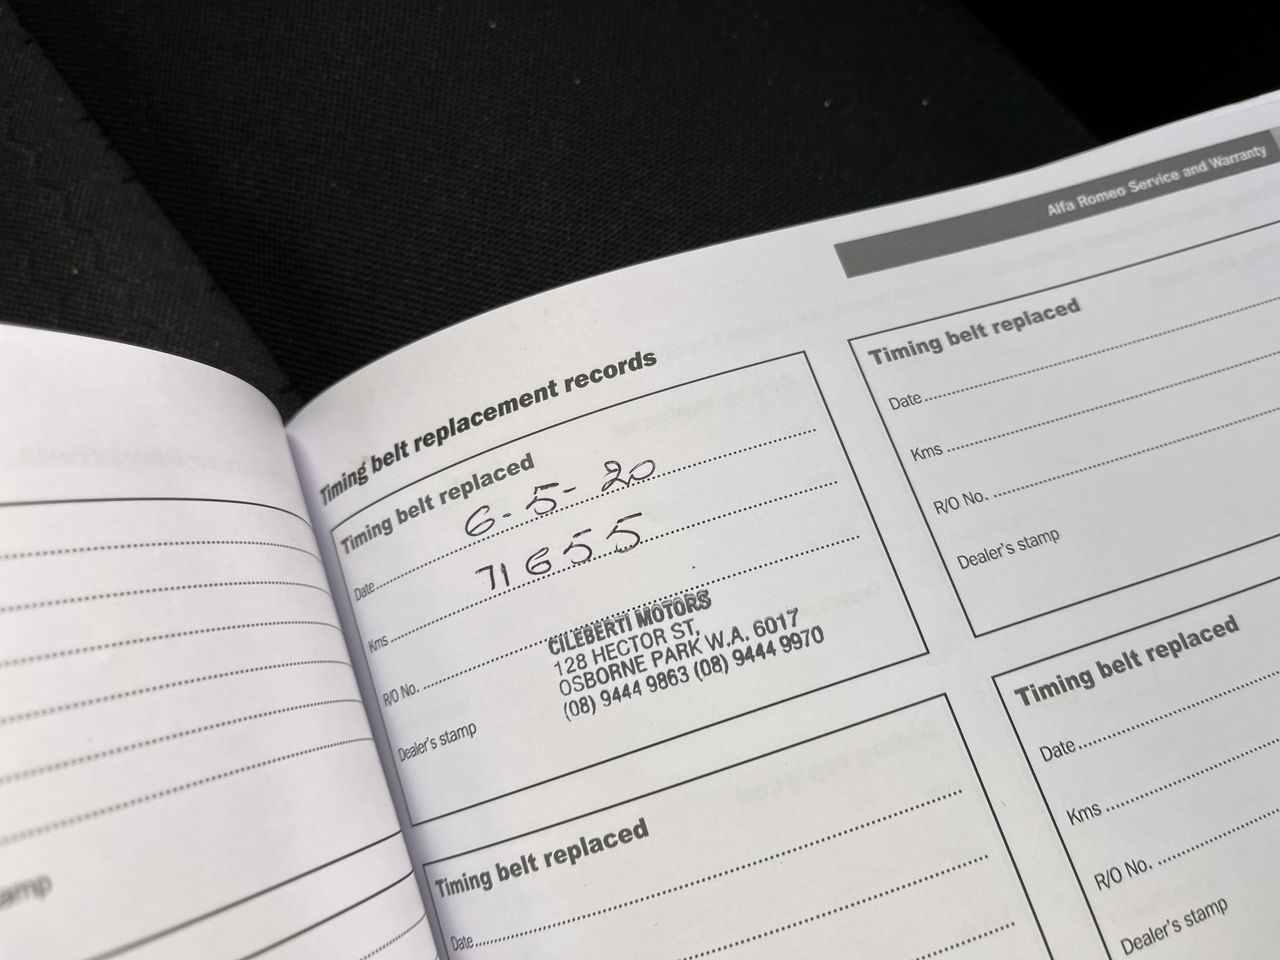 Alfa Romeo Service and Warranty
Timing belt replacement records
Timing belt replaced
Date 6-5-20
Kms 71655
R/O No.
Dealer's stamp
CILEBERTI MOTORS
128 HECTOR ST,
OSBORNE PARK W.A. 6017
(08) 9444 9863 (08) 9444 9970
Timing belt replaced
Date
Kms
R/O No.
Dealer's stamp
Timing belt replaced
Date
Timing belt replaced
Date
Kms
R/O No.
Dealer's stamp